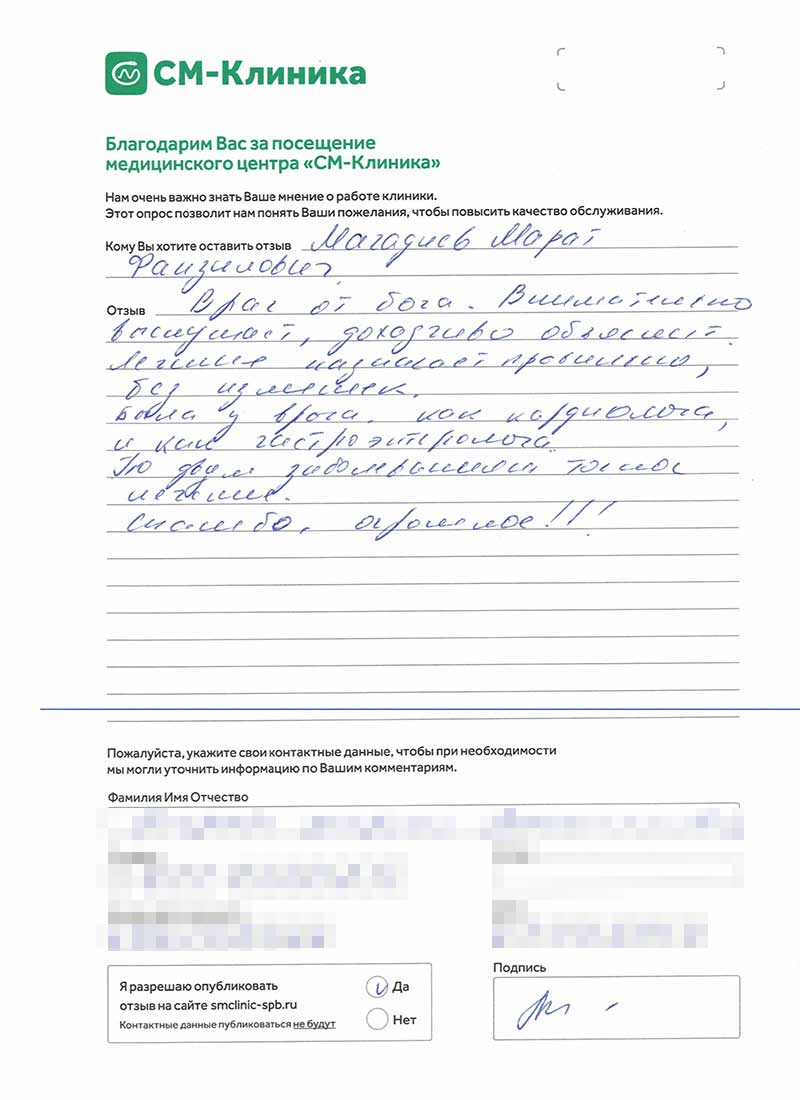 СМ-Клиника
Благодарим Вас за посещение
медицинского центра «СМ-Клиника»
Нам очень важно знать Ваше мнение о работе клиники.
Этот опрос позволит нам понять Ваши пожелания, чтобы повысить качество обслуживания.
Кому Вы хотите оставить отзыв Магадиев Марат
Фанзилович
Отзыв Врач от бога. Внимательно
выслушает, доходчиво объяснит.
Лечение назначает правильно,
без излишек.
Была у врача, как кардиолога,
и как гастроэнтеролога.
По двум заболеваниям точное
лечение.
Спасибо, огромное!!!
Пожалуйста, укажите свои контактные данные, чтобы при необходимости
мы могли уточнить информацию по Вашим комментариям.
Фамилия Имя Отчество
Подпись
Я разрешаю опубликовать
отзыв на сайте smclinic-spb.ru
Контактные данные публиковаться не будут
Да
Нет